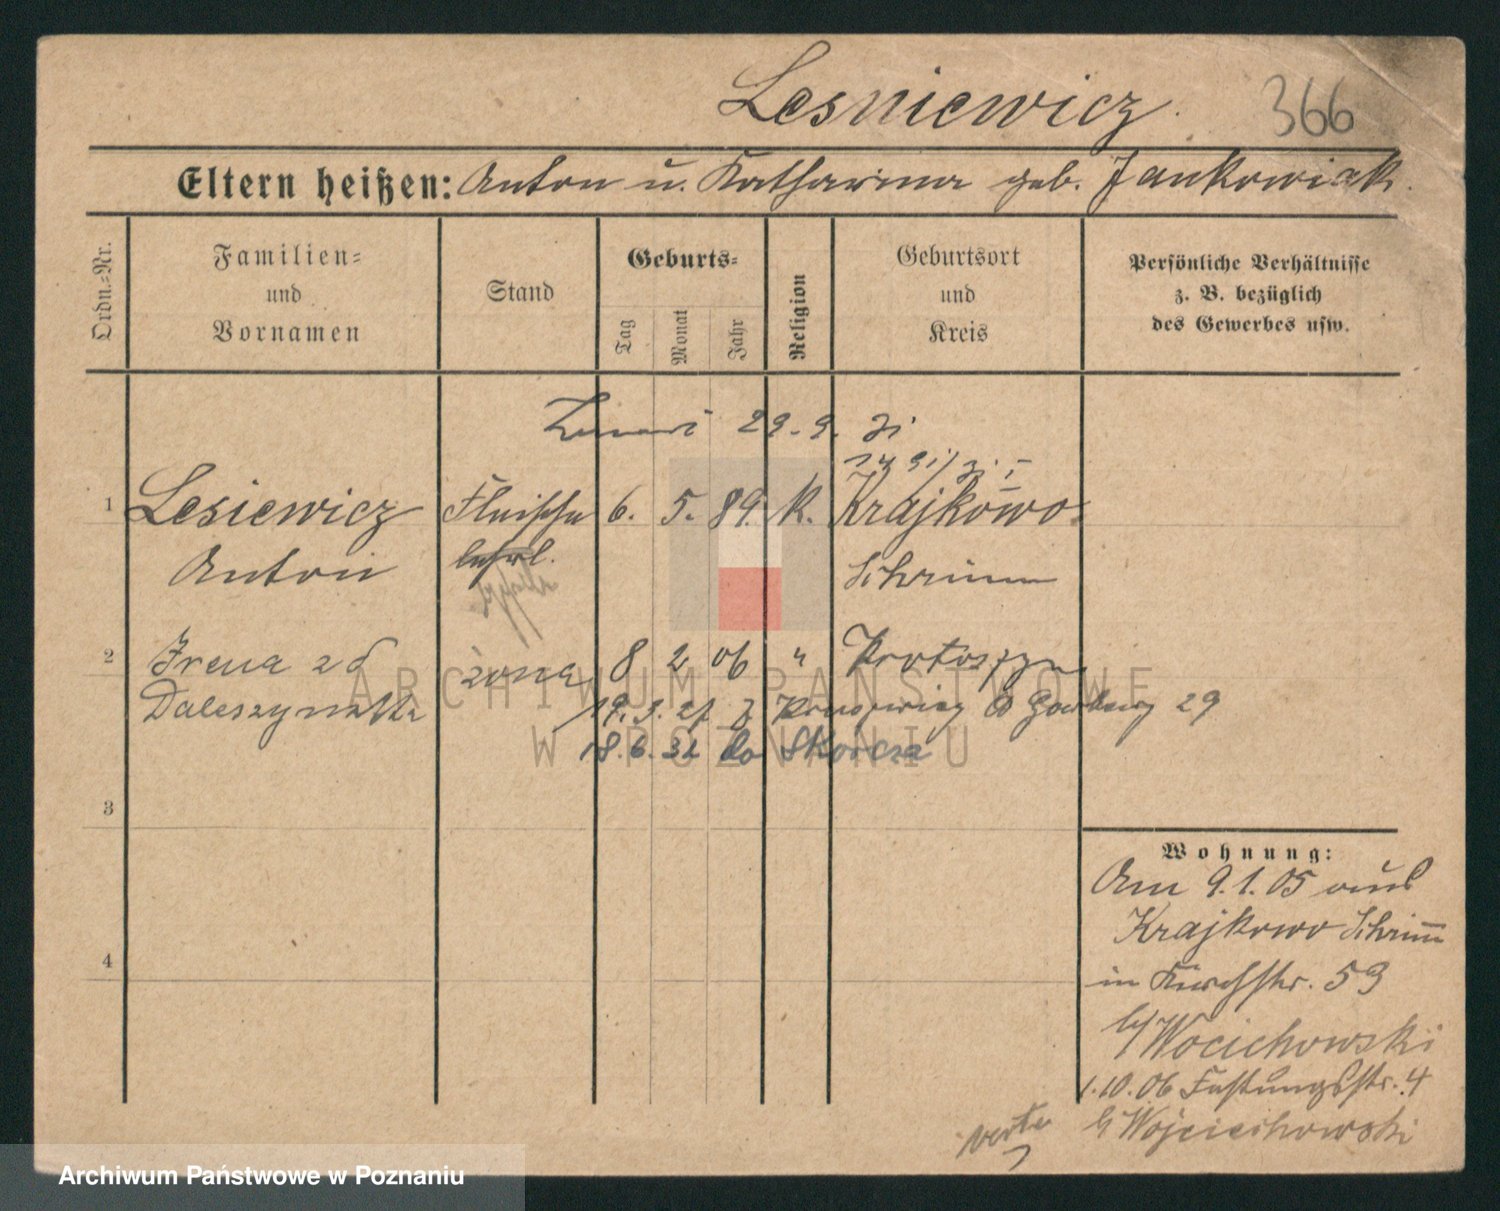 Lesniewicz.
366
Eltern heißen: Anton u. Katharina geb. Jankowiak.
Ordn.-Nr.
Familien-
und
Vornamen
Stand
Geburts-
Tag
Monat
Jahr
Religion
Geburtsort
und
Kreis
Persönliche Verhältnisse
z. B. bezüglich
des Gewerbes usw.
29. 9. 31
1 Lesiewicz Fleischer 6. 5. 89. K. Krajkowo
Anton lehrl. Schrimm
2 Irena zd żona 8 2 06 " Krotoszyn
Daleszyńska
19. 3. 27 z Gartenberg 29
18. 6. 32 do Skórcza
3
4
Wohnung:
Am 9.1.05 aus
Krajkowo Schrimm
in Kirchstr. 53
b/ Wocichowski
1.10.06 Festungsstr. 4
b/ Wojciechowski
verte
ARCHIWUM PAŃSTWOWE
W POZNANIU
Archiwum Państwowe w Poznaniu